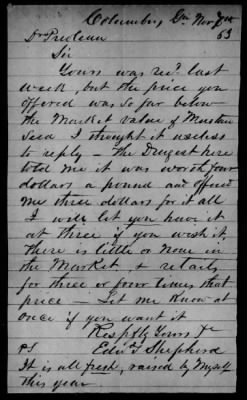 Columbus Ga Nov
63
Dr Prioleau
Sir
Yours was recd. last
week, but the price you
offered was so far below
the Market value of Mustard
Seed I thought it useless
to reply – The Drugest here
told me it was worth four
dollars a pound and offered
me three dollars for it all
I will let you have it
at three if you wish it.
There is little or none in
the Market, & retails
for three or four times that
price – Let me know at
once if you want it
Respftly Yours &c
Edw. T Shepherd
PS
It is all fresh, raised by Myself
this year